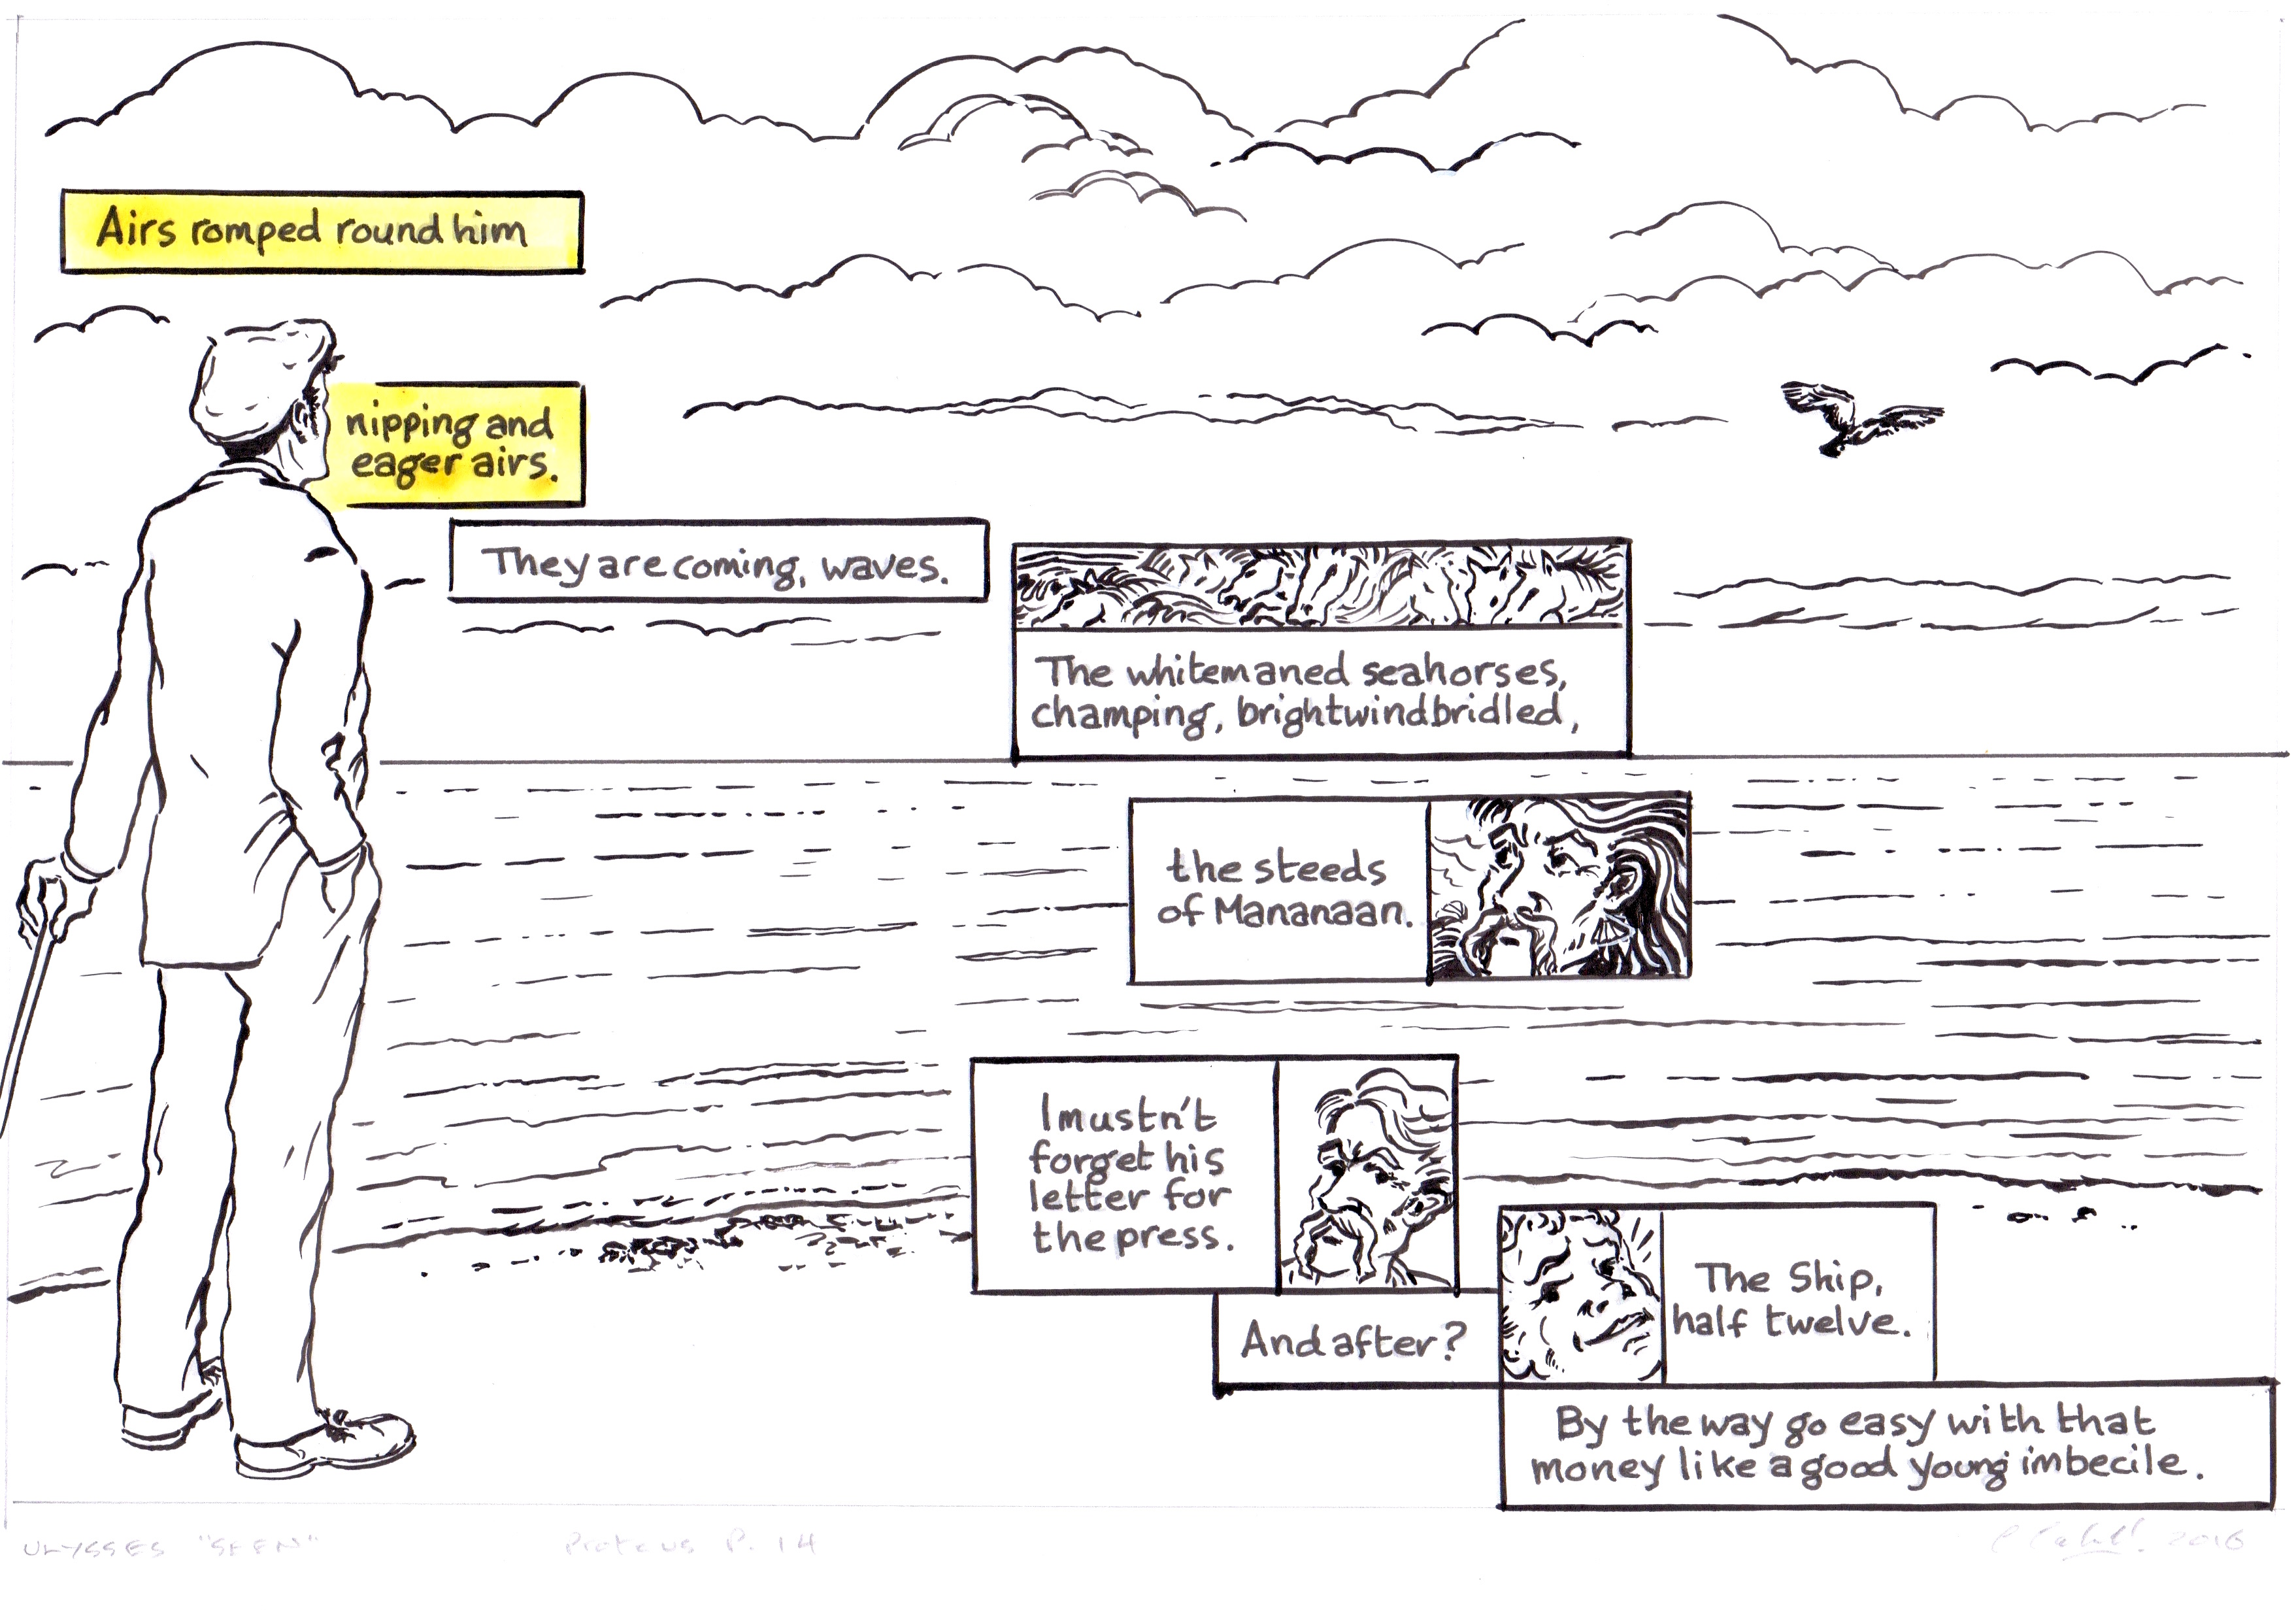 Airs romped round him
nipping and
eager airs.
They are coming, waves.
The whitemaned seahorses,
champing, brightwindbridled,
the steeds
of Mananaan.
I mustn't
forget his
letter for
the press.
And after?
The Ship,
half twelve.
By the way go easy with that
money like a good young imbecile.
ULYSSES "SEEN"
Proteus P. 14
2016